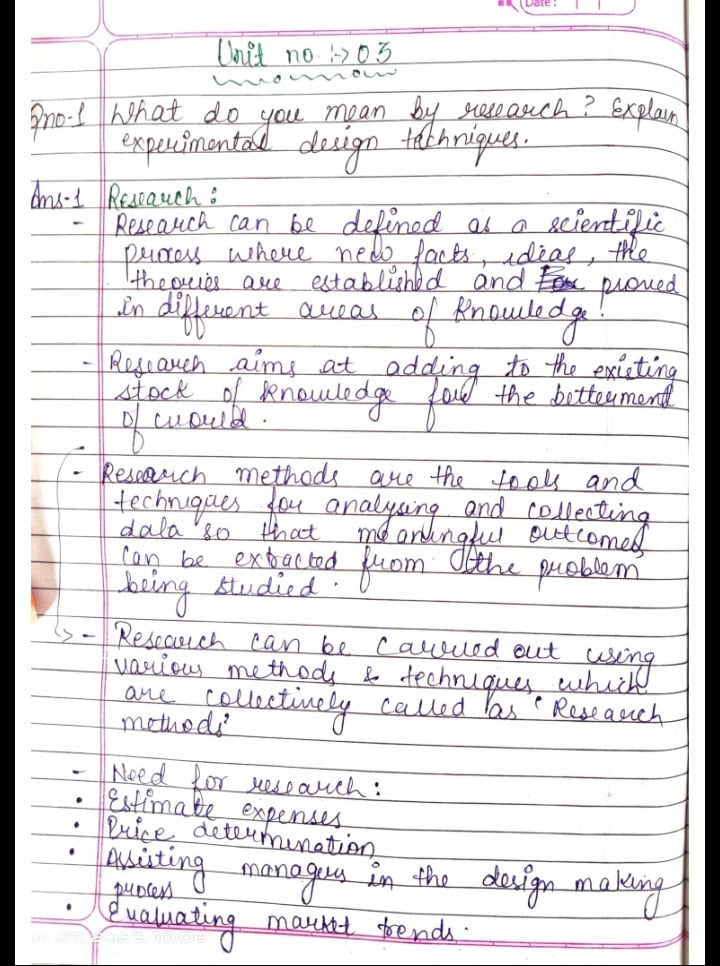 Date:
Unit no :-> 03
Qno-1 What do you mean by research? Explain
experimental design techniques.
Ans-1 Research:
- Research can be defined as a scientific
process where new facts, ideas, the
theories are established and proved
in different areas of knowledge.
- Research aims at adding to the existing
stock of knowledge for the betterment
of world.
- Research methods are the tools and
techniques for analysing and collecting
data so that meaningful outcomes
can be extracted from the problem
being studied.
- Research can be carried out using
various methods & techniques which
are collectively called as "Research
methods"
- Need for research:
• Estimate expenses
• Price determination
• Assisting managers in the design making
process
• Evaluating market trends.